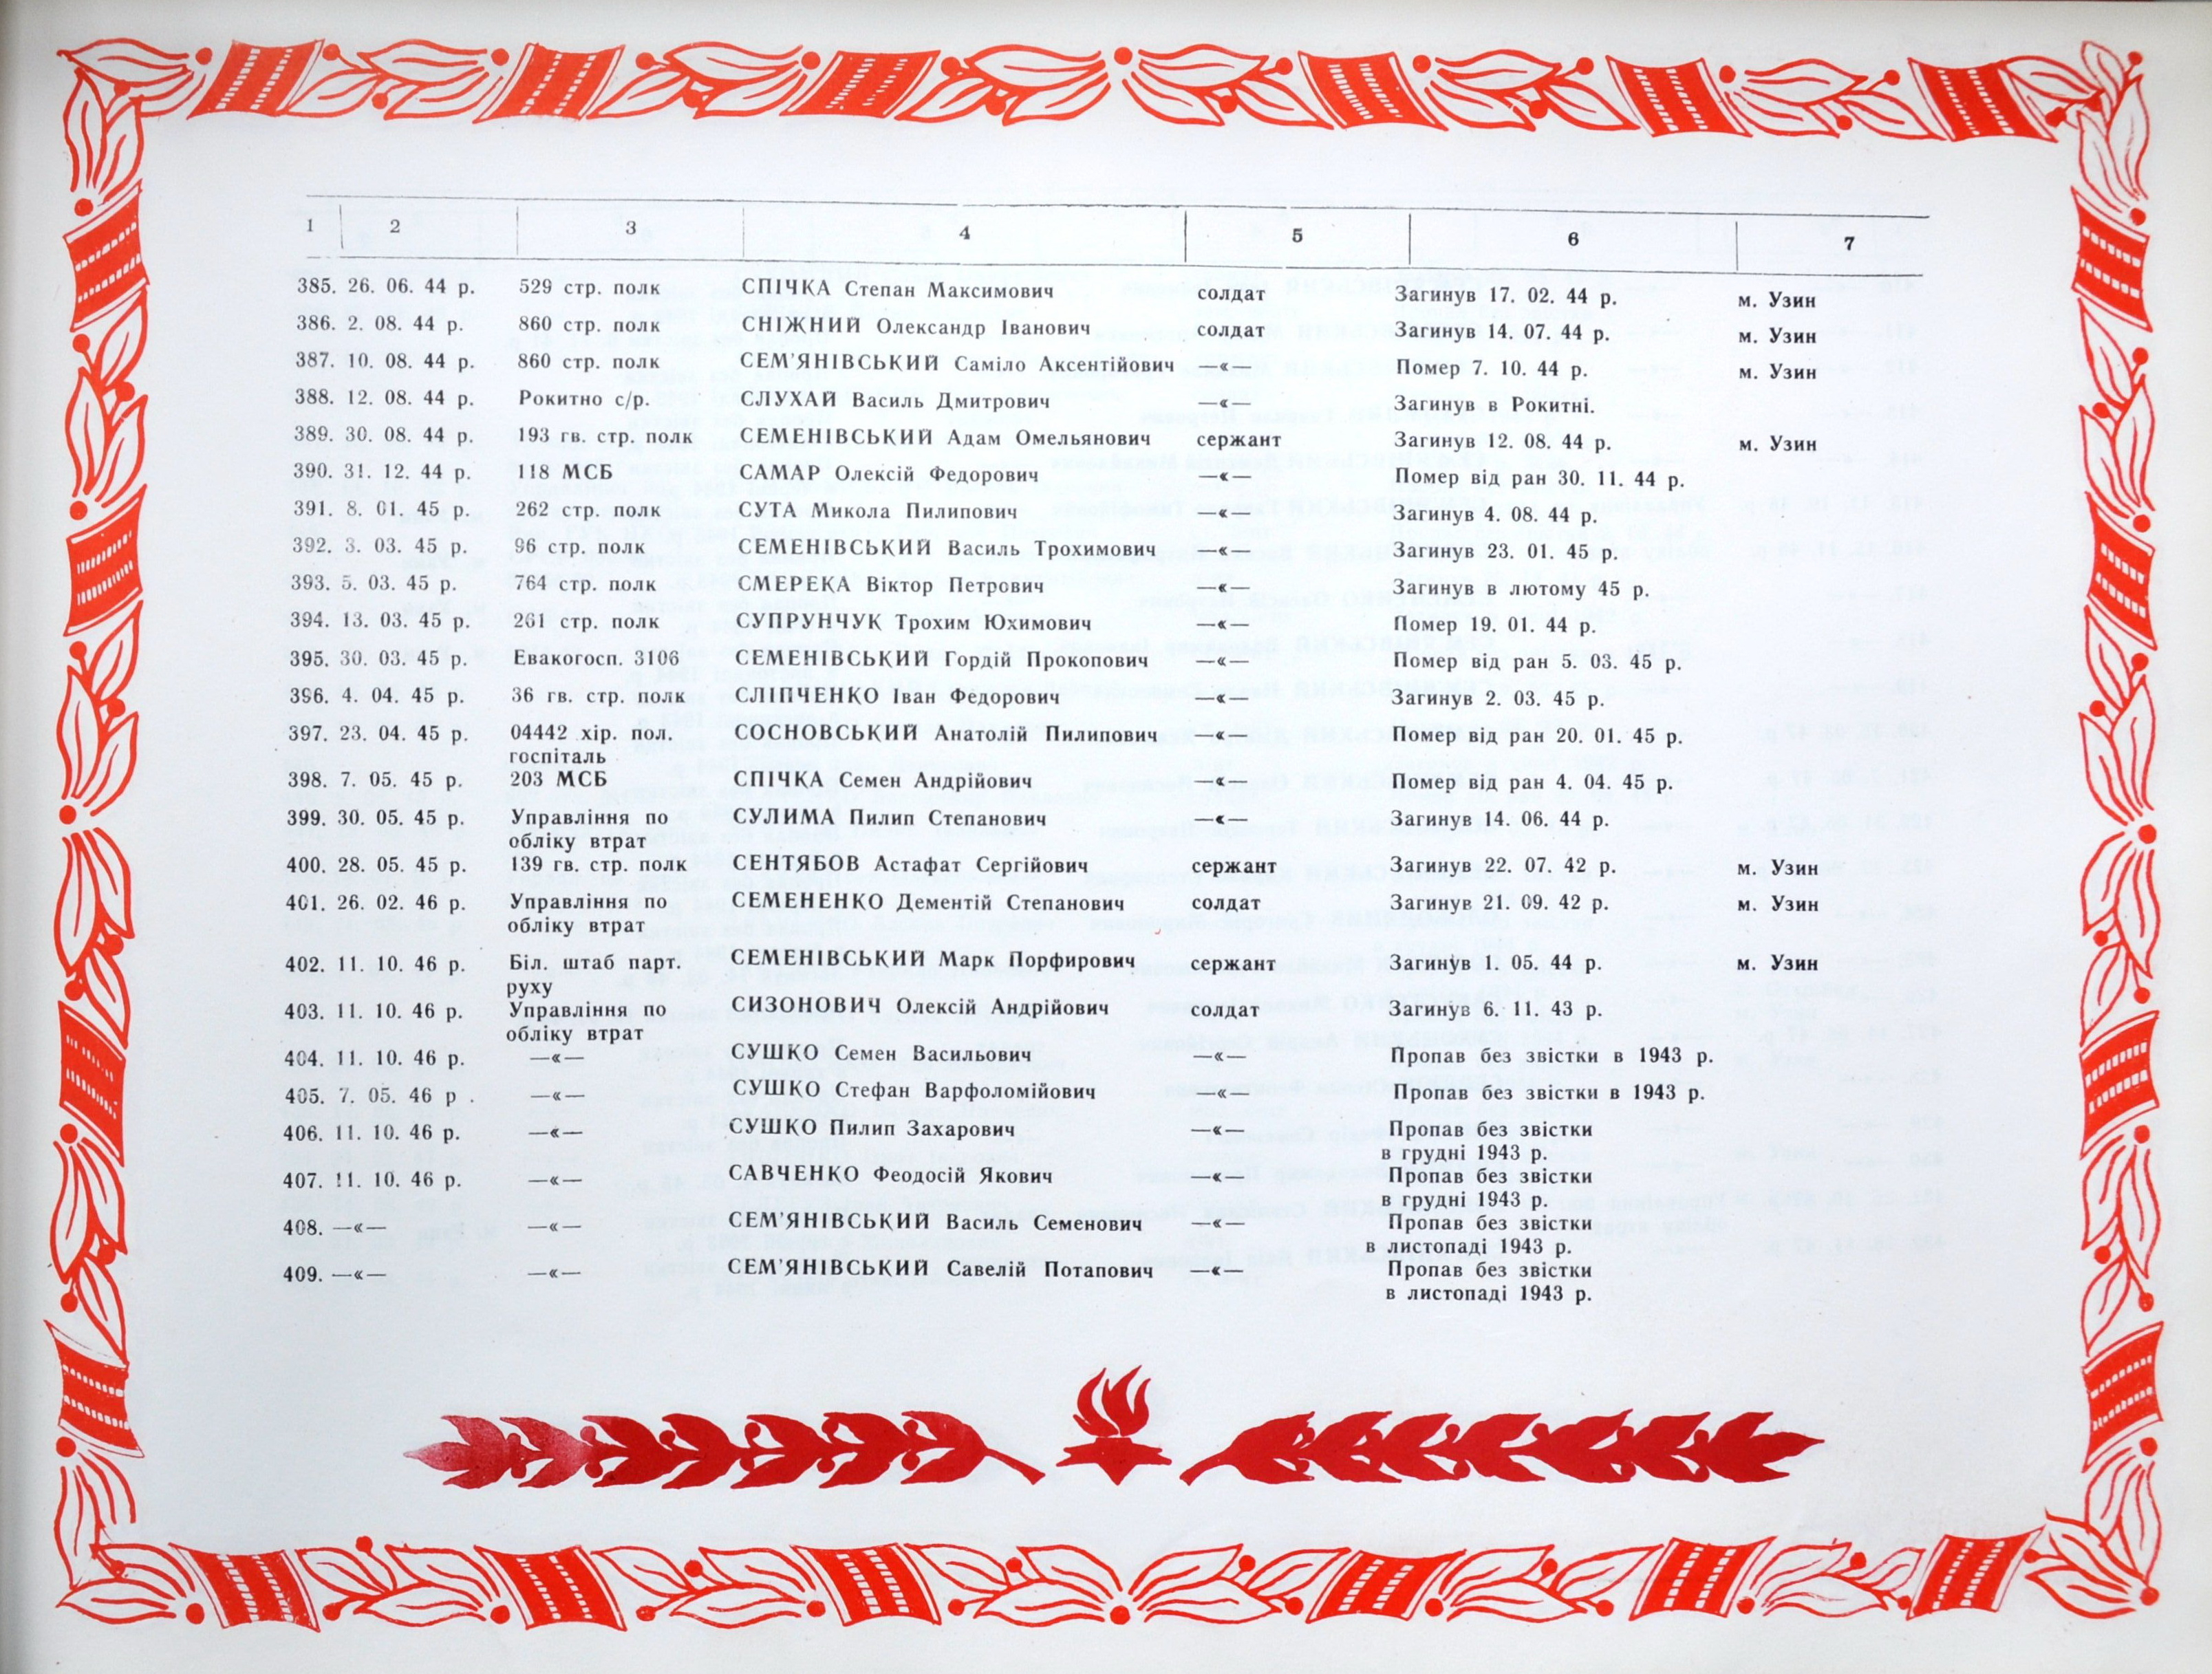 1 2 3 4 5 6 7
385. 26. 06. 44 р. 529 стр. полк СПІЧКА Степан Максимович солдат Загинув 17. 02. 44 р. м. Узин
386. 2. 08. 44 р. 860 стр. полк СНІЖНИЙ Олександр Іванович солдат Загинув 14. 07. 44 р. м. Узин
387. 10. 08. 44 р. 860 стр. полк СЕМ’ЯНІВСЬКИЙ Саміло Аксентійович —«— Помер 7. 10. 44 р. м. Узин
388. 12. 08. 44 р. Рокитно с/р. СЛУХАЙ Василь Дмитрович —«— Загинув в Рокитні.
389. 30. 08. 44 р. 193 гв. стр. полк СЕМЕНІВСЬКИЙ Адам Омельянович сержант Загинув 12. 08. 44 р. м. Узин
390. 31. 12. 44 р. 118 МСБ САМАР Олексій Федорович —«— Помер від ран 30. 11. 44 р.
391. 8. 01. 45 р. 262 стр. полк СУТА Микола Пилипович —«— Загинув 4. 08. 44 р.
392. 3. 03. 45 р. 96 стр. полк СЕМЕНІВСЬКИЙ Василь Трохимович —«— Загинув 23. 01. 45 р.
393. 5. 03. 45 р. 764 стр. полк СМЕРЕКА Віктор Петрович —«— Загинув в лютому 45 р.
394. 13. 03. 45 р. 261 стр. полк СУПРУНЧУК Трохим Юхимович —«— Помер 19. 01. 44 р.
395. 30. 03. 45 р. Евакогосп. 3106 СЕМЕНІВСЬКИЙ Гордій Прокопович —«— Помер від ран 5. 03. 45 р.
396. 4. 04. 45 р. 36 гв. стр. полк СЛІПЧЕНКО Іван Федорович —«— Загинув 2. 03. 45 р.
397. 23. 04. 45 р. 04442 хір. пол. СОСНОВСЬКИЙ Анатолій Пилипович —«— Помер від ран 20. 01. 45 р.
госпіталь
398. 7. 05. 45 р. 203 МСБ СПІЧКА Семен Андрійович —«— Помер від ран 4. 04. 45 р.
399. 30. 05. 45 р. Управління по СУЛИМА Пилип Степанович —«— Загинув 14. 06. 44 р.
обліку втрат
400. 28. 05. 45 р. 139 гв. стр. полк СЕНТЯБОВ Астафат Сергійович сержант Загинув 22. 07. 42 р. м. Узин
401. 26. 02. 46 р. Управління по СЕМЕНЕНКО Дементій Степанович солдат Загинув 21. 09. 42 р. м. Узин
обліку втрат
402. 11. 10. 46 р. Біл. штаб парт. СЕМЕНІВСЬКИЙ Марк Порфирович сержант Загинув 1. 05. 44 р. м. Узин
руху
403. 11. 10. 46 р. Управління по СИЗОНОВИЧ Олексій Андрійович солдат Загинув 6. 11. 43 р.
обліку втрат
404. 11. 10. 46 р. —«— СУШКО Семен Васильович —«— Пропав без звістки в 1943 р.
405. 7. 05. 46 р . —«— СУШКО Стефан Варфоломійович —«— Пропав без звістки в 1943 р.
406. 11. 10. 46 р. —«— СУШКО Пилип Захарович —«— Пропав без звістки
в грудні 1943 р.
407. 11. 10. 46 р. —«— САВЧЕНКО Феодосій Якович —«— Пропав без звістки
в грудні 1943 р.
408. —«— —«— СЕМ’ЯНІВСЬКИЙ Василь Семенович —«— Пропав без звістки
в листопаді 1943 р.
409. —«— —«— СЕМ’ЯНІВСЬКИЙ Савелій Потапович —«— Пропав без звістки
в листопаді 1943 р.